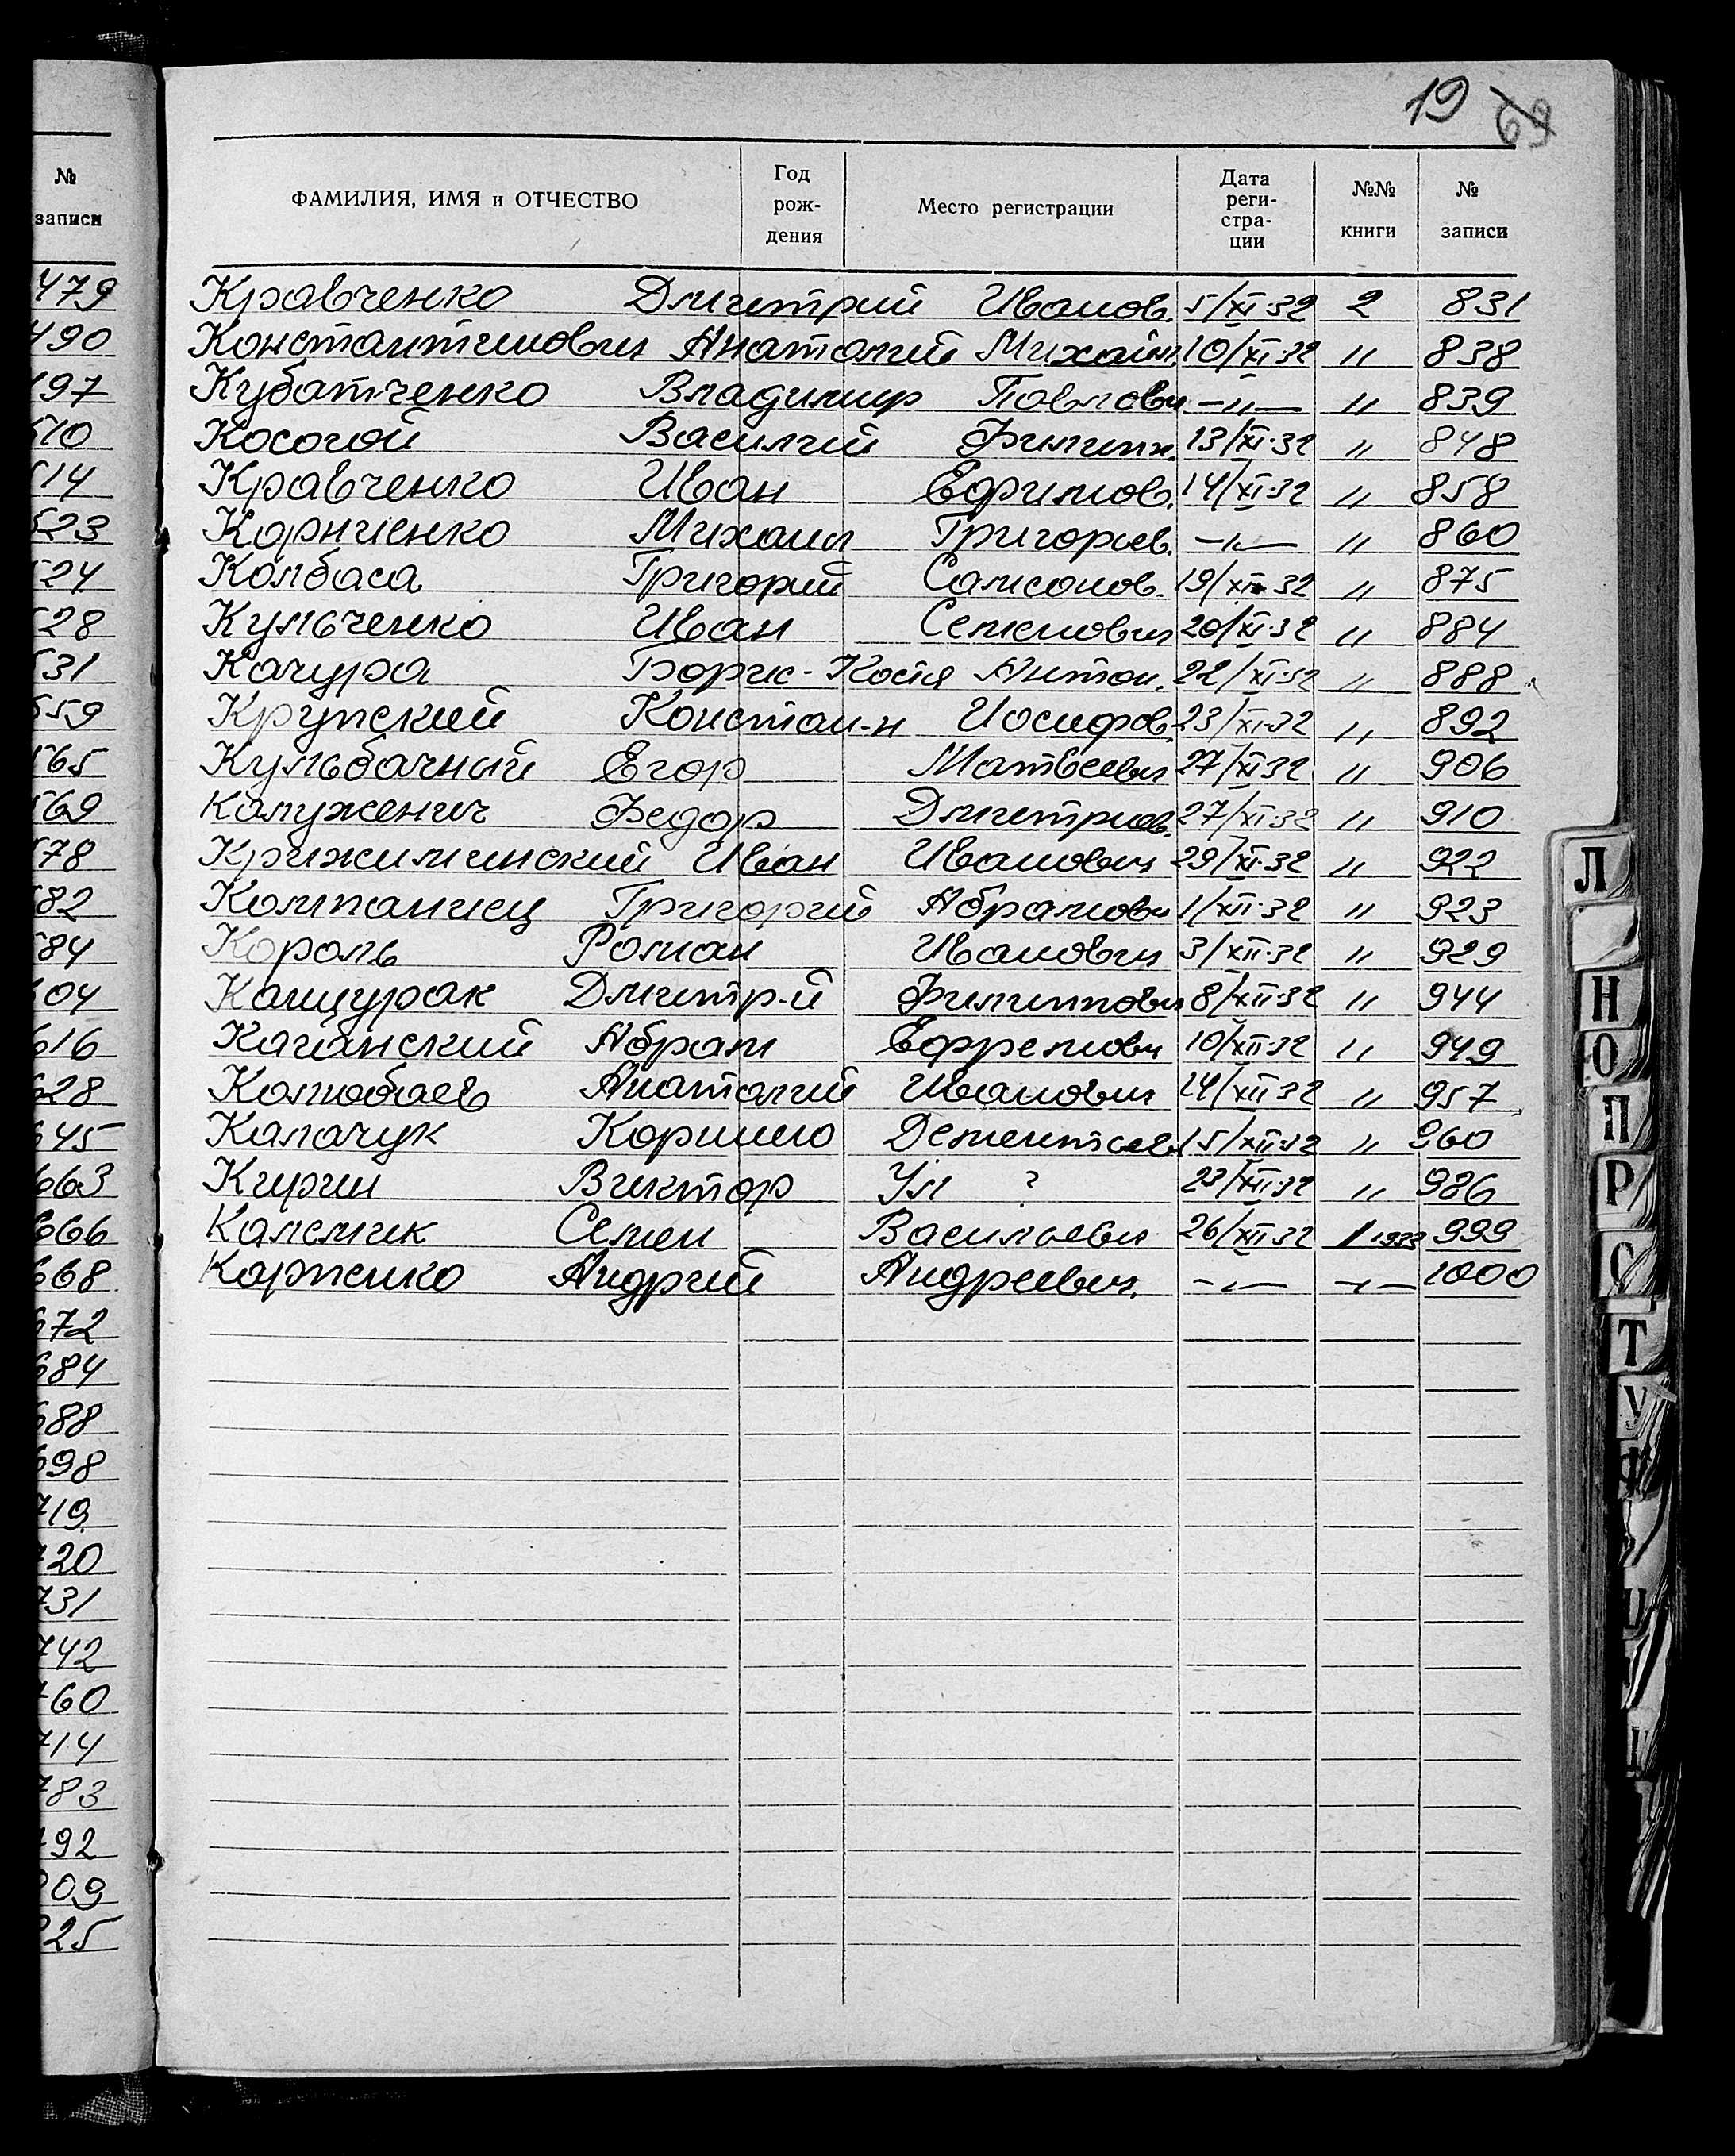 19 69
№ записи
ФАМИЛИЯ, ИМЯ и ОТЧЕСТВО Год рож- дения Место регистрации Дата реги- стра- ции №№ книги № записи
479 Кравченко Дмитрий Иванов. 5/XI-32 2 831
490 Константинович Анатолий Михайл. 10/XI-32 " 838
97 Кубатченко Владимир Павлович -"- " 839
510 Косогой Василий Филипп. 13/XI-32 " 848
14 Кравченко Иван Ефимов. 14/XI-32 " 858
523 Корниенко Михаил Григорьев. -"- " 860
524 Колбаса Григорий Самсонов. 19/XI-32 " 875
528 Кульченко Иван Семенович 20/XI-32 " 884
531 Качура Борис-Костя Антон. 22/XI-32 " 888
559 Крупский Констан-н Иосифов. 23/XI-32 " 892
565 Кульбачный Егор Матвеевич 27/XI-32 " 906
569 Калуженич Федор Дмитриев. 27/XI-32 " 910
578 Крижилинский Иван Иванович 29/XI-32 " 922
82 Компаниец Григорий Абрамович 1/XII-32 " 923
584 Король Роман Иванович 3/XII-32 " 929
604 Кащурак Дмитр-й Филиппович 8/XII-32 " 944
616 Каганский Абрам Ефремович 10/XII-32 " 949
628 Колюбаев Анатолий Иванович 14/XII-32 " 957
645 Калачук Корнило Дементьев. 15/XII-32 " 960
663 Кирин Виктор Ул ? 23/XII-32 " 986
666 Калемик Семен Васильевич 26/XII-32 1 1933 999
668 Карпенко Андрий Андреевич. -"- -"- 1000
672
684
688
698
719
720
731
742
760
714
783
792
809
825
Л
Н
О
П
Р
С
Т
У
Ф
Ц